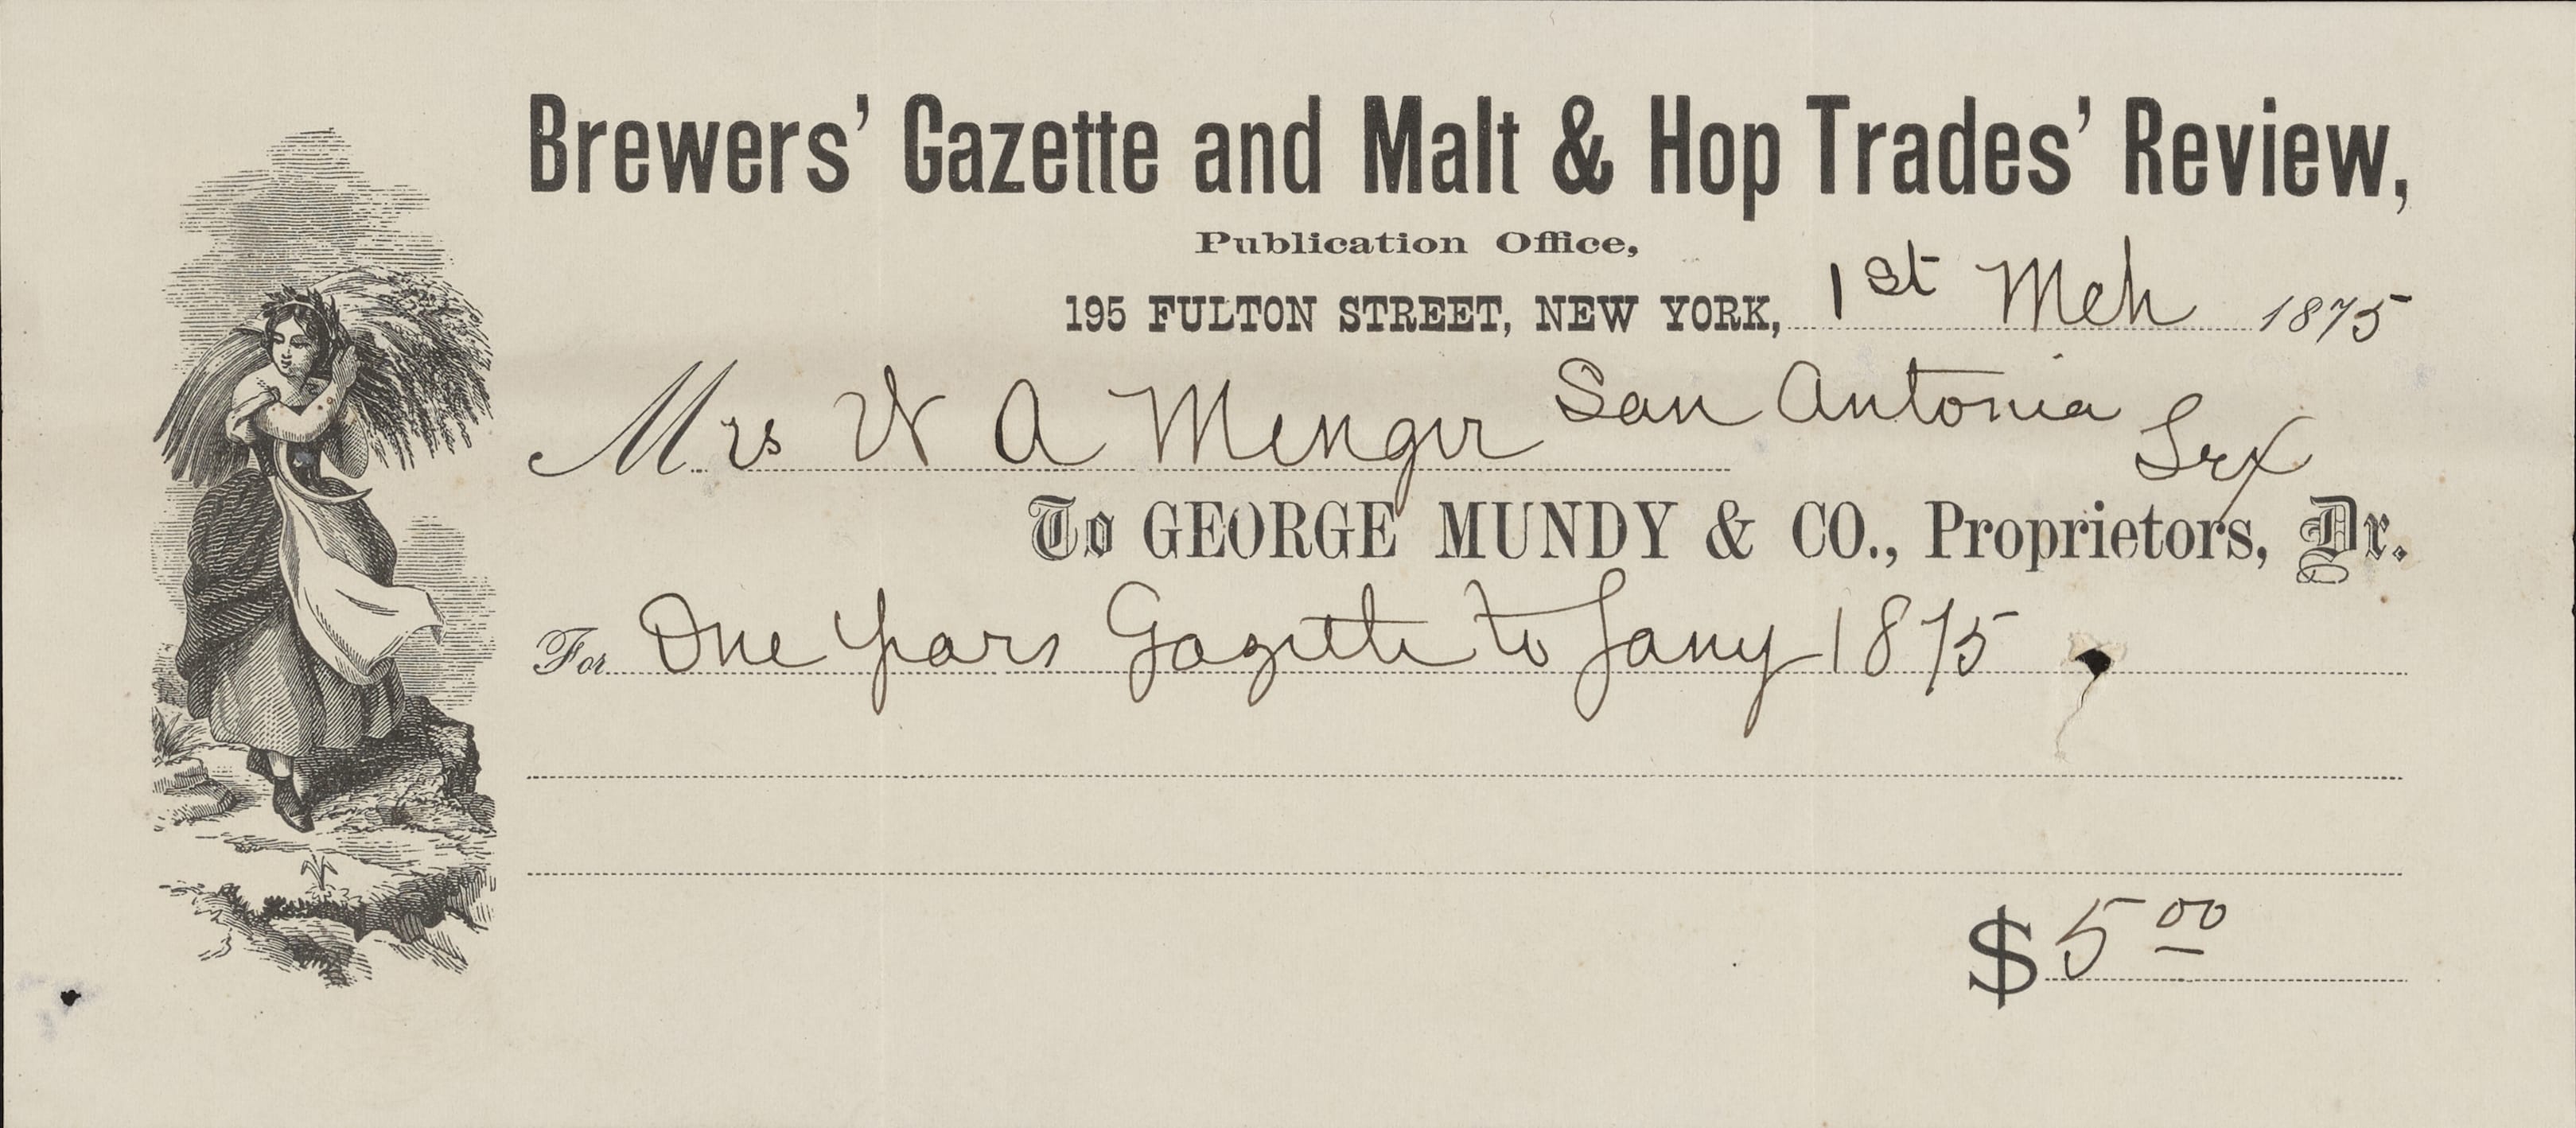 Brewers' Gazette and Malt & Hop Trades' Review,
Publication Office,
195 FULTON STREET, NEW YORK, 1st Mch 1875
Mrs W A Menger San Antonia Tex
To GEORGE MUNDY & CO., Proprietors, Dr.
For One Years Gazette to Jany 1875
$ 5 00